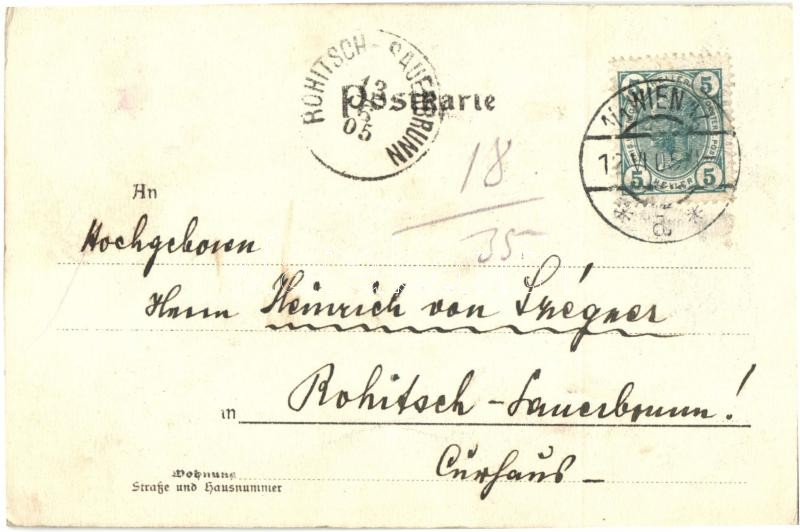 ROHITSCH-SAUERBRUNN
13
6
05
Postkarte
WIEN
12 VI 05
5 5
5 5
18
35
An
Hochgeboren
Herrn Heinrich von
in Rohitsch-Sauerbrunn!
Curhaus-
Wohnung
Straße und Hausnummer